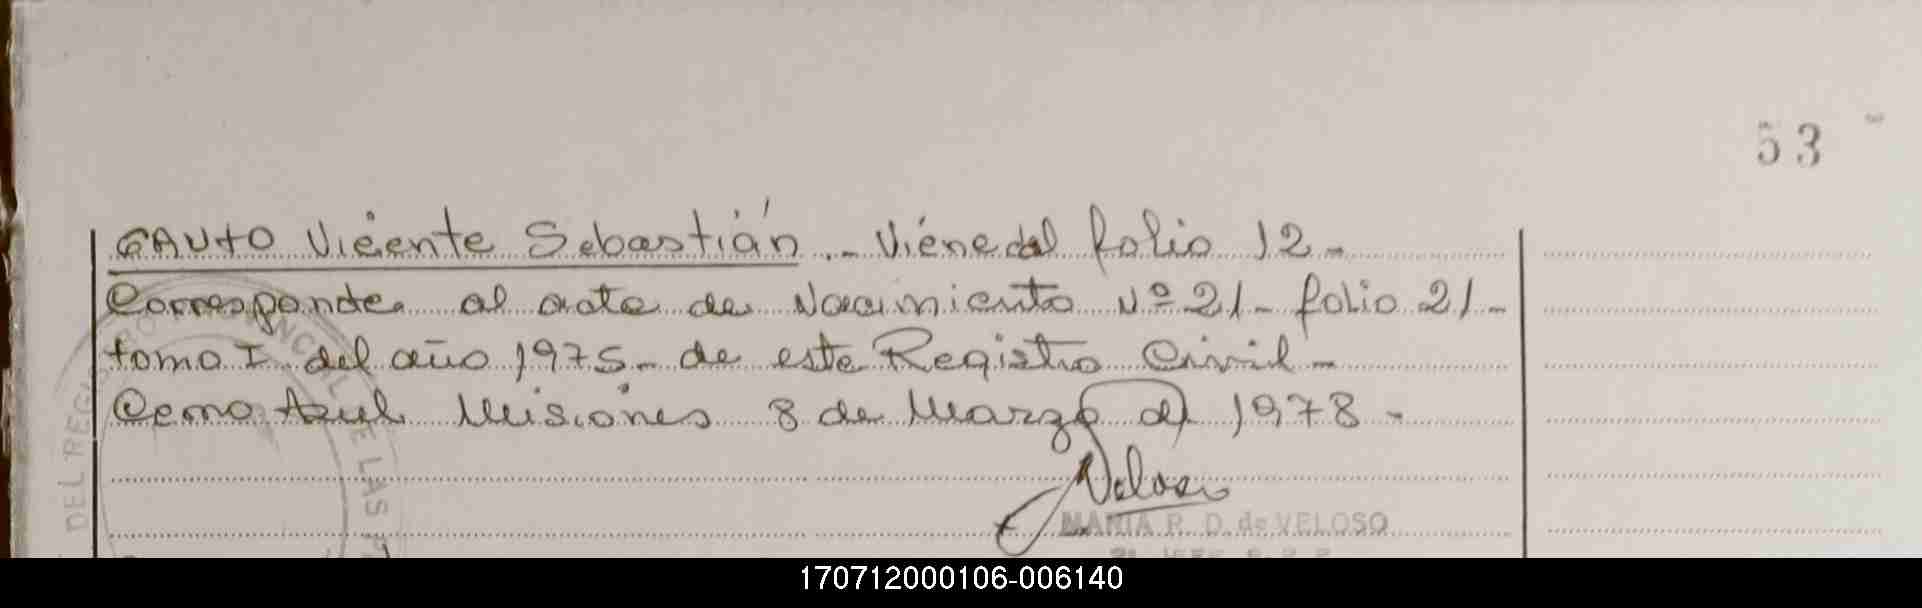 53
GAUTO Vicente Sebastián.- Viene del folio 12-
Corresponde al acta de Nacimiento Nº 21- folio 21-
tomo I del año 1975- de este Registro Civil-
Cerro Azul Misiones 8 de Marzo de 1978-
Veloso
MARIA R. D. de VELOSO
DEL REG
DE LAS P
170712000106-006140